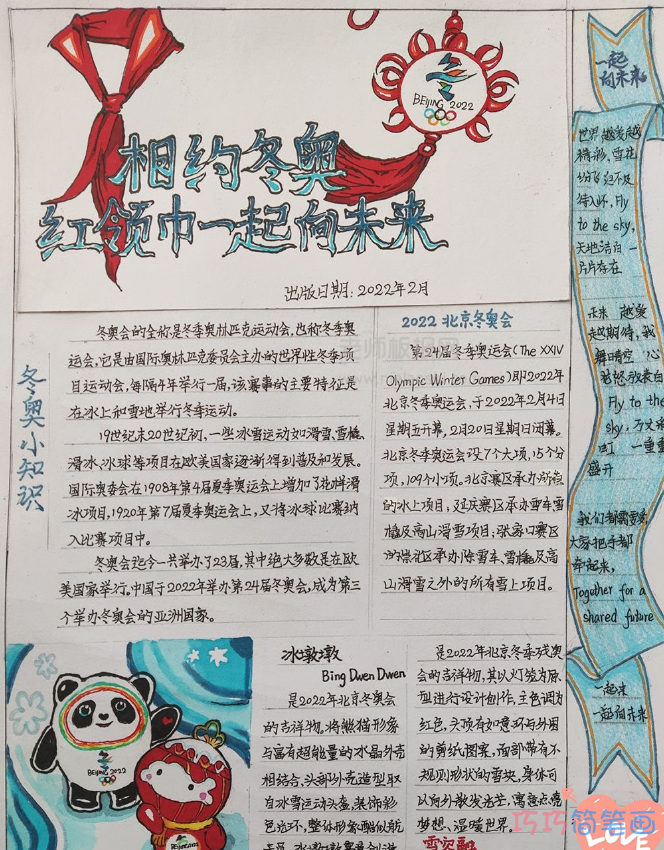 BEIJING 2022
相约冬奥
红领巾一起向未来
出版日期:2022年2月
冬奥小知识
冬奥会的全称是冬季奥林匹克运动会,也称冬季奥
运会,它是由国际奥林匹克委员会主办的世界性冬季项
目运动会,每隔4年举行一届,该赛事的主要特征是
在冰上和雪地举行冬季运动。
19世纪末20世纪初,一些冰雪运动如滑雪、雪橇、
滑冰、冰球等项目在欧美国家逐渐得到普及和发展。
国际奥委会在1908年第4届夏季奥运会上增加了花样滑
冰项目,1920年第7届夏季奥运会上,又将冰球比赛纳
入比赛项目中。
冬奥会迄今一共举办了23届,其中绝大多数是在欧
美国家举行。中国于2022年举办第24届冬奥会,成为第三
个举办冬奥会的亚洲国家。
2022北京冬奥会
第24届冬季奥运会(The XXIV
Olympic Winter Games)即2022年
北京冬季奥运会,于2022年2月4日
星期五开幕,2月20日星期日闭幕。
北京冬季奥运会设7个大项,15个分
项,109个小项。北京赛区承办所有
的冰上项目,延庆赛区承办雪车雪
橇及高山滑雪项目;张家口赛区
的崇礼区承办除雪车、雪橇及高
山滑雪之外的所有雪上项目。
BEIJING 2022
冰墩墩
Bing Dwen Dwen
是2022年北京冬奥会
的吉祥物,将熊猫形象
与富有超能量的冰晶外壳
相结合,头部外壳造型取
自冰雪运动头盔,装饰彩
色光环,整体形象酷似航
是2022年北京冬季残奥
会的吉祥物,其以灯笼为原
型进行设计创作,主色调为
红色,头顶有如意环与外围
的剪纸图案,面部带有不
规则形状的雪块,身体可
以向外散发光芒,寓意点亮
梦想、温暖世界。
雪容融
一起
向未来
世界越爱越
精彩,雪花
纷飞迫不及
待入怀,Fly
to the sky,
天地洁白一
片片存在
未来 越爱
越期待,我
Fly to the
sky,
盛开
我们都需要
大家把手都
牵起来,
Together for a
shared future
一起来
一起向未来
LOVE
巧巧简笔画